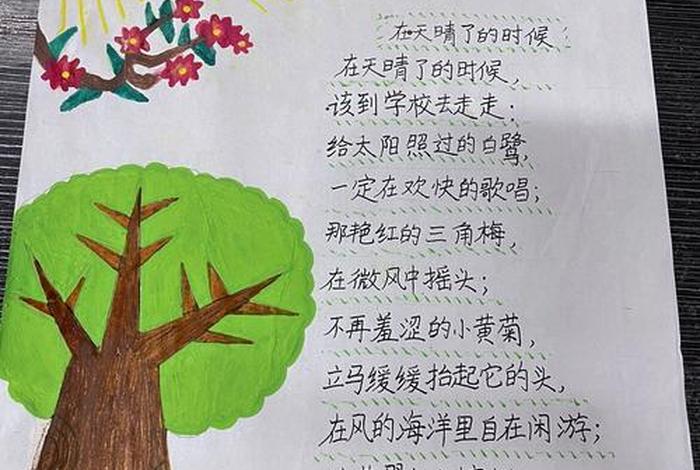 在天晴了的时候
在天晴了的时候，
该到学校去走走：
给太阳照过的白鹭，
一定在欢快的歌唱；
那艳红的三角梅，
在微风中摇头；
不再羞涩的小黄菊，
立马缓缓抬起它的头，
在风的海洋里自在闲游；